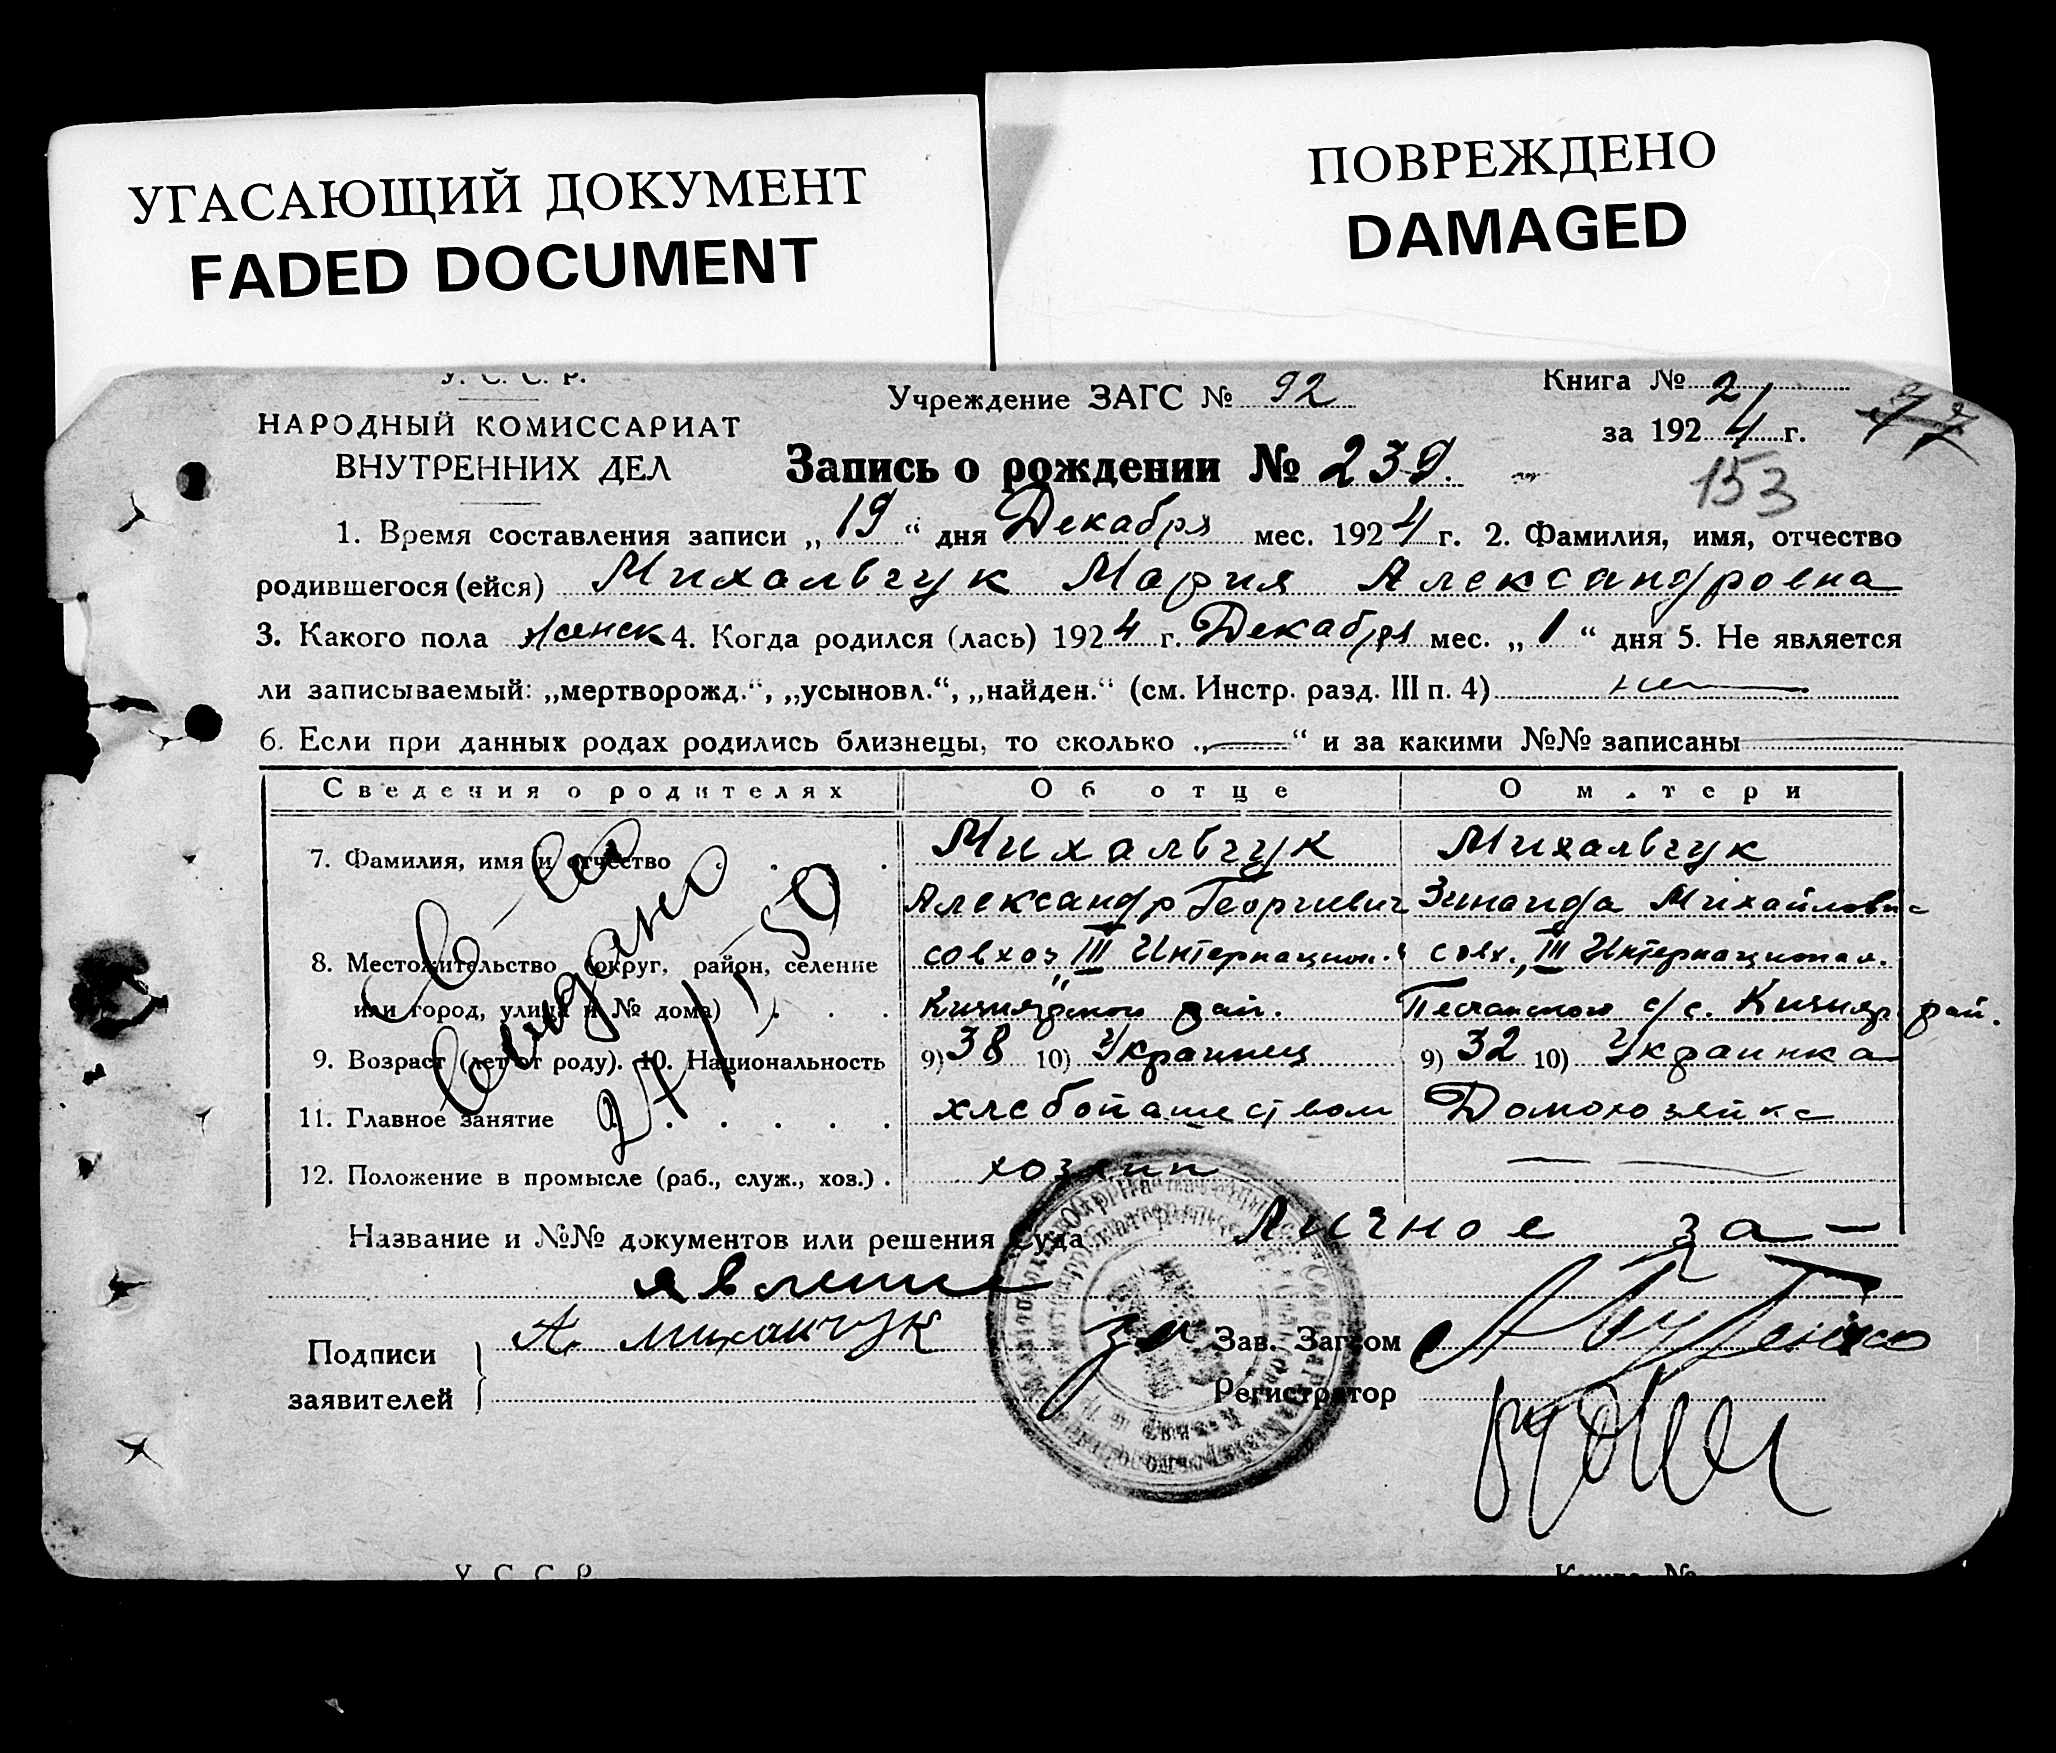 УГАСАЮЩИЙ ДОКУМЕНТ
FADED DOCUMENT
ПОВРЕЖДЕНО
DAMAGED
У. С. С. Р.
НАРОДНЫЙ КОМИССАРИАТ
ВНУТРЕННИХ ДЕЛ
Учреждение ЗАГС № 92
Книга № 2
за 1924 г.
77
153
Запись о рождении № 239.
1. Время составления записи „19“ дня Декабря мес. 1924 г. 2. Фамилия, имя, отчество
родившегося (ейся) Михальчук Мария Александровна
3. Какого пола женск 4. Когда родился (лась) 1924 г. Декабря мес. „1“ дня 5. Не является
ли записываемый: „мертворожд.“, „усыновл.“, „найден.“ (см. Инстр. разд. III п. 4) нет
6. Если при данных родах родились близнецы, то сколько „—“ и за какими №№ записаны
Сведения о родителях Об отце О матери
7. Фамилия, имя и отчество Михальчук Михальчук
Александр Георгиевич Зинаида Михайловна
8. Местожительство (округ, район, селение совхоз „III Интернацион.“ совх. „III Интернационал.
или город, улица и № дома) рай. с/с. рай.
9. Возраст (лет от роду). 10. Национальность 9) 38 10) Украинец 9) 32 10) Украинка
11. Главное занятие хлебопашеством Домохозяйка
12. Положение в промысле (раб., служ., хоз.) хозяин — —
С-во
выдано
27/ 50
Название и №№ документов или решения Суда Личное за-
явление
Подписи
заявителей
А. Михалчук
за Зав. Загсом
Регистратор
У. С. С. Р.
Книга №